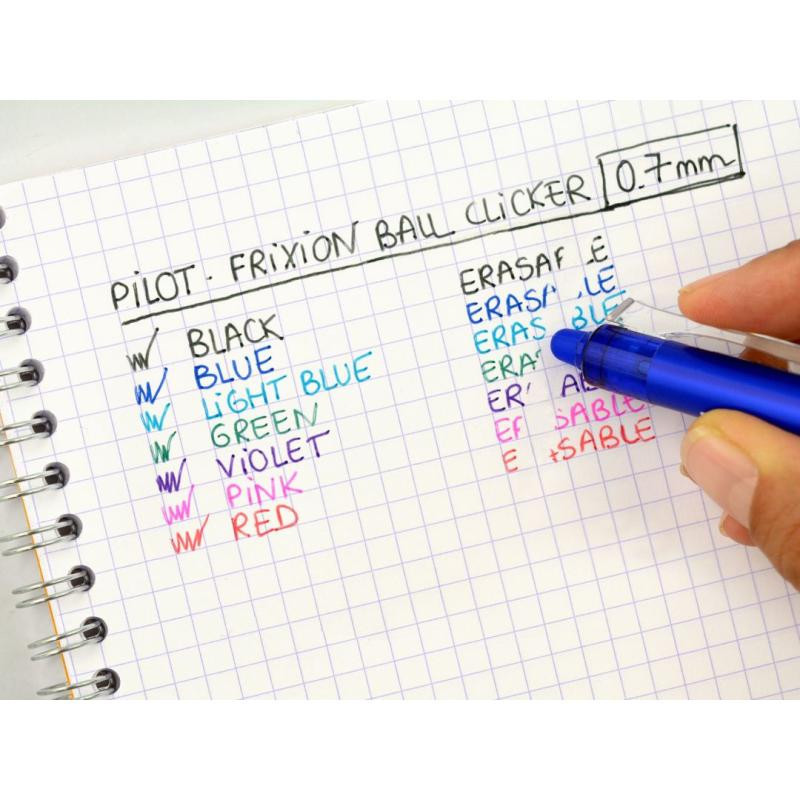 PiLOT. FRiXiON BALL CLiCKER 0.7mm
BLACK
BLUE
LiGHT BLUE
GREEN
ViOLET
PiNK
RED
ERASA E
ERAS LE
ERAS BLE
ERA
ER
E SABLE
E SABLE